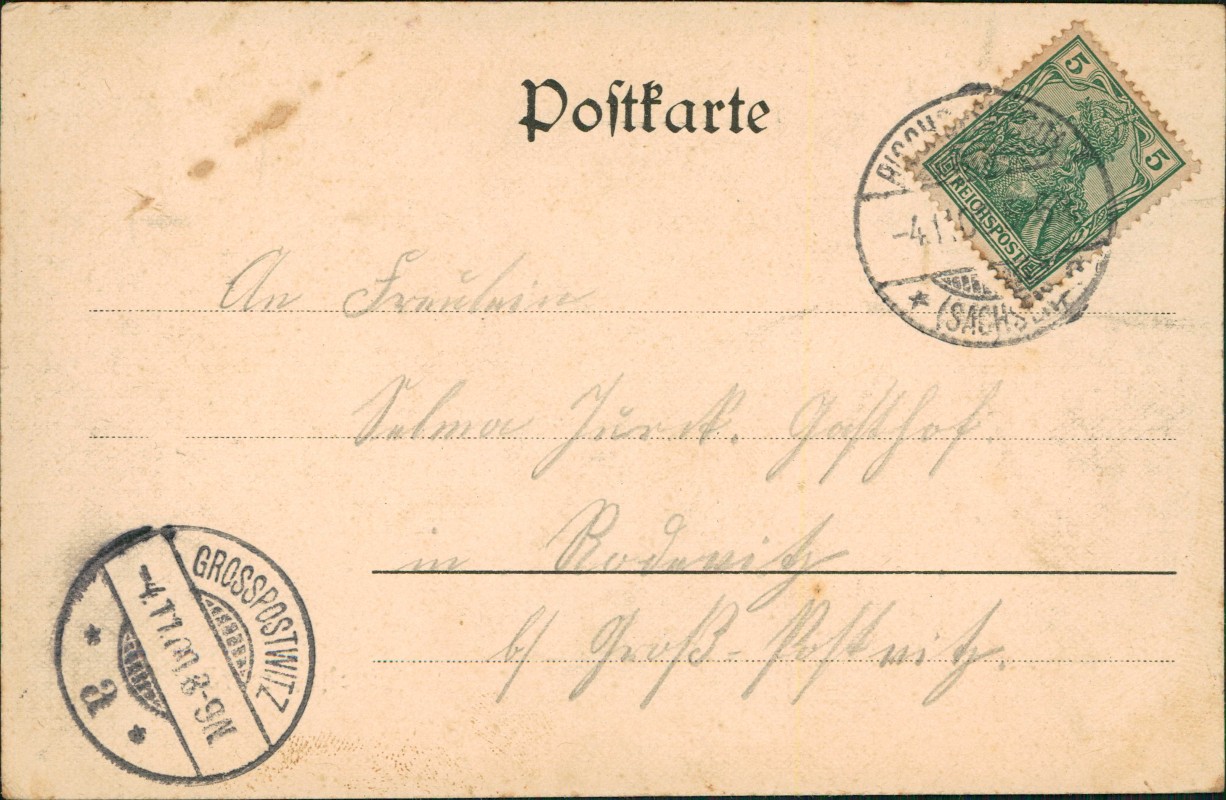 Postkarte
5
5
REICHSPOST
BISCHO
-4.11.
* (SACHSEN)
An Fräulein
Selma Jurck. Gasthof.
in Rodewitz
b/ Groß-Postwitz.
GROSSPOSTWITZ
-4.11.00.8-9N
* a *